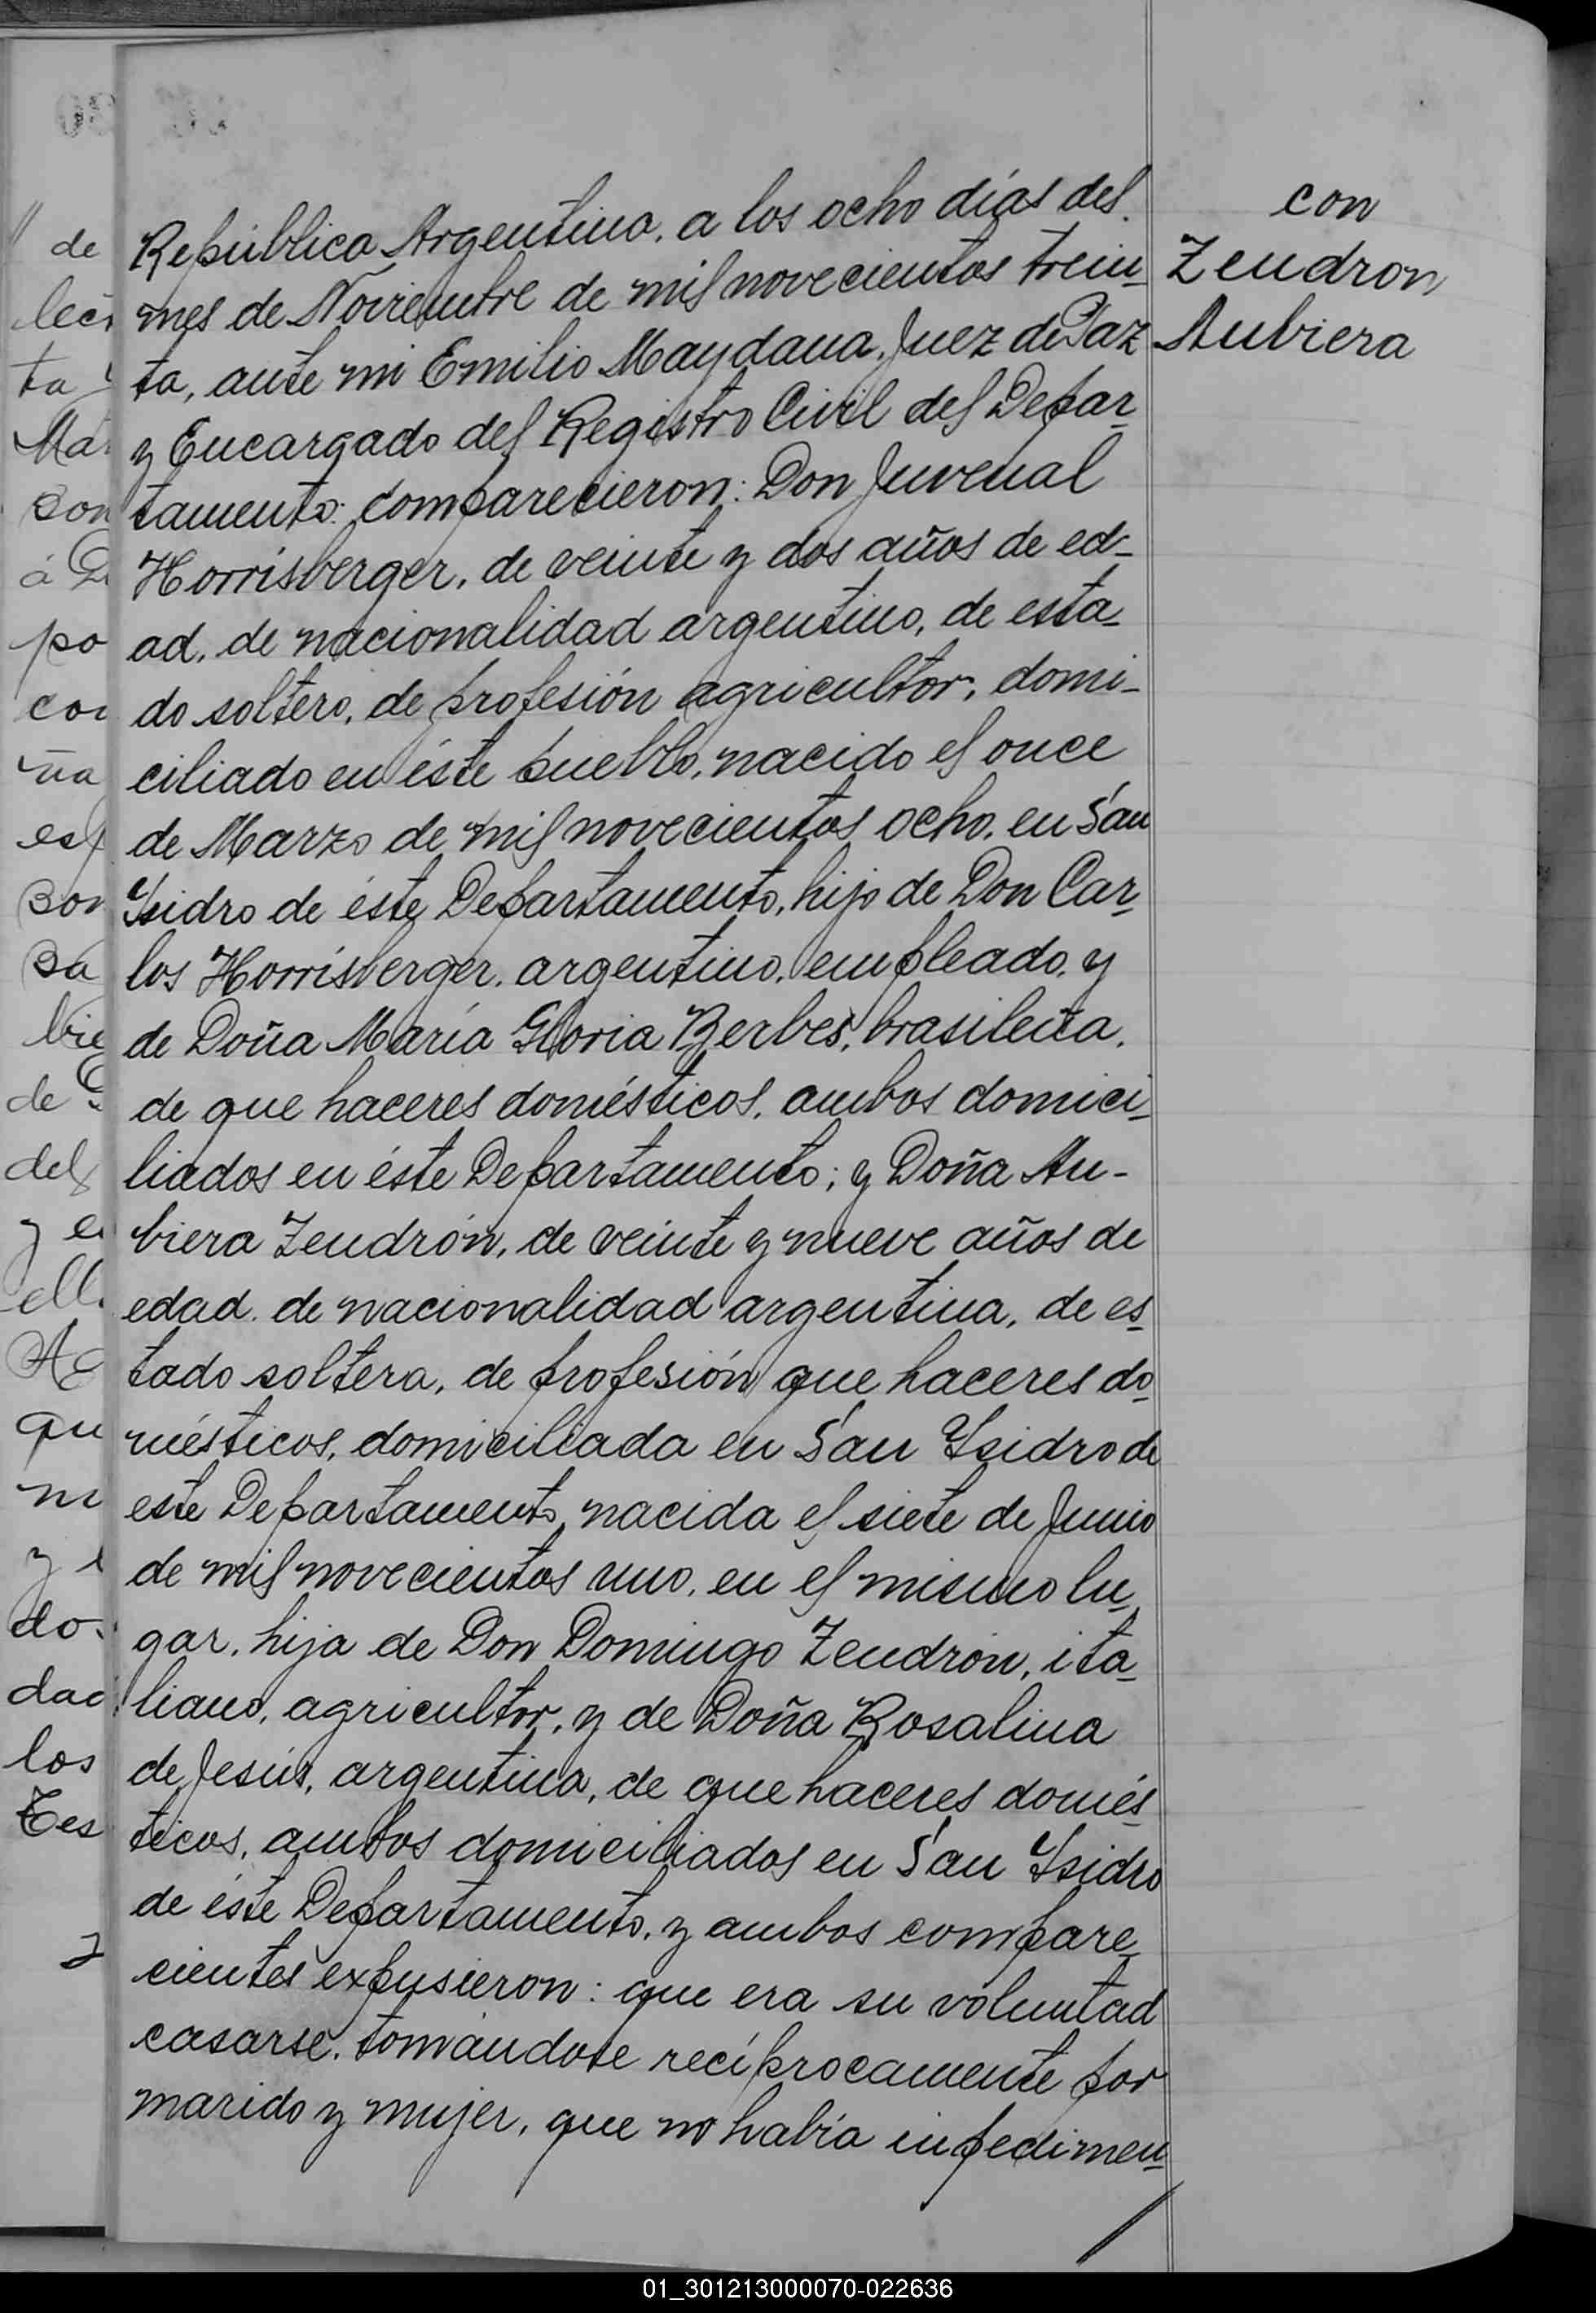 con
Zendron
Aubiera
República Argentina, a los ocho días del
mes de Noviembre de mil novecientos trein-
ta, ante mi Emilio Maydana, Juez de Paz
y Encargado del Registro Civil del Depar-
tamento: comparecieron: Don Juvenal
Horrisberger, de veinte y dos años de ed-
ad, de nacionalidad argentino, de esta-
do soltero, de profesión agricultor, domi-
ciliado en éste pueblo, nacido el once
de Marzo de mil novecientos ocho, en San
Ysidro de éste Departamento, hijo de Don Car-
los Horrisberger, argentino, empleado, y
de Doña María Gloria Berbes, brasileña,
de que haceres domésticos, ambos domici-
liados en éste Departamento; y Doña Au-
biera Zendrón, de veinte y nueve años de
edad, de nacionalidad argentina, de es-
tado soltera, de profesión que haceres do-
mésticos, domiciliada en San Ysidro de
este Departamento, nacida el siete de Junio
de mil novecientos uno, en el mismo lu-
gar, hija de Don Domingo Zendrón, ita-
liano, agricultor, y de Doña Rosalina
de Jesús, argentina, de que haceres domés-
ticos, ambos domiciliados en San Ysidro
de éste Departamento, y ambos compare-
cientes expusieron: que era su voluntad
casarse, tomándose recíprocamente por
marido y mujer, que no había inpedimen-
01_301213000070-022636